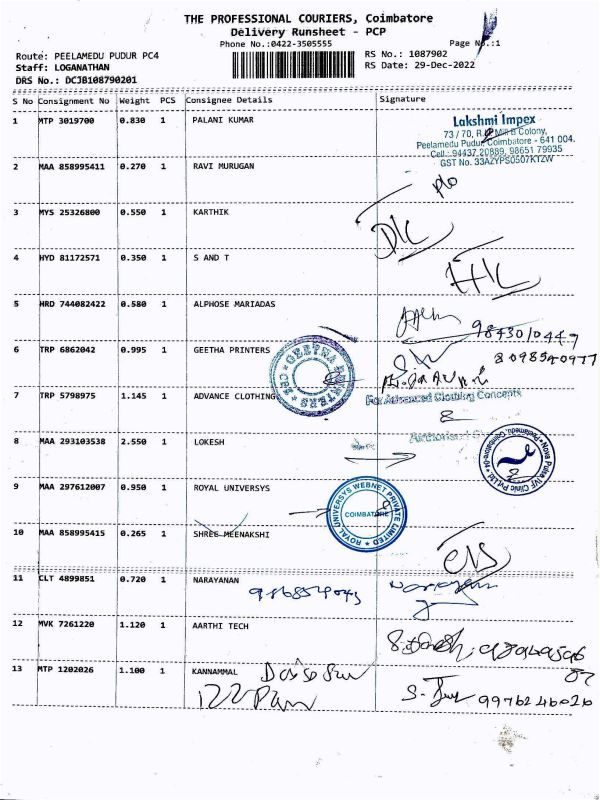 THE PROFESSIONAL COURIERS, Coimbatore
Delivery Runsheet - PCP
Phone No.:0422-3505555
Page No.:1
Route: PEELAMEDU PUDUR PC4
Staff: LOGANATHAN
DRS No.: DCJB108790201
RS No.: 1087902
RS Date: 29-Dec-2022
S No Consignment No Weight PCS Consignee Details Signature
1 MTP 3019700 0.830 1 PALANI KUMAR
Lakshmi Impex
73 / 70, Mill B Colony,
Peelamedu Pudur, Coimbatore - 641 004.
Cell : 94437 20889, 98651 79935
GST No. 33AZYPS0507K1ZW
2 MAA 858995411 0.270 1 RAVI MURUGAN
3 MYS 25326800 0.550 1 KARTHIK
4 HYD 81172571 0.350 1 S AND T
5 HRD 744082422 0.580 1 ALPHOSE MARIADAS
9843010447
6 TRP 6862042 0.995 1 GEETHA PRINTERS
GEETHA PRINTERS
8098540977
7 TRP 5798975 1.145 1 ADVANCE CLOTHING
For Advanced Clothing Concepts
8 MAA 293103538 2.550 1 LOKESH
Nova Pulse IVF Clinic Pvt.Ltd
Peelamedu, Coimbatore-04
9 MAA 297612007 0.950 1 ROYAL UNIVERSYS
ROYAL UNIVERSYS WEBNET PRIVATE LIMITED
COIMBATORE
10 MAA 858995415 0.265 1 SHREE MEENAKSHI
11 CLT 4899851 0.720 1 NARAYANAN
Narayan
12 MVK 7261220 1.120 1 AARTHI TECH
13 MTP 1202026 1.100 1 KANNAMMAL
9976246026